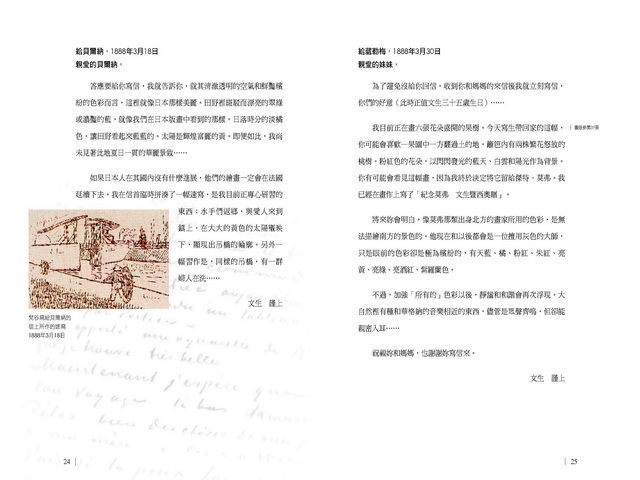 給貝爾納，1888年3月18日
親愛的貝爾納，
答應要給你寫信，我就告訴你，就其清澈透明的空氣和鮮豔繽
紛的色彩而言，這裡就像日本那樣美麗。田野裡斑駁而漂亮的翠綠
或濃豔的藍，就像我們在日本版畫中看到的那樣。日落時分的淡橘
色，讓田野看起來藍藍的。太陽是輝煌富麗的黃。即便如此，我尚
未見著此地夏日一貫的華麗景致……
如果日本人在其國內沒有什麼進展，他們的繪畫一定會在法國
延續下去。我在信首臨時拼湊了一幅速寫，是我目前正專心研習的
東西：水手們返鄉，與愛人來到
鎮上，在大大的黃色的太陽襯映
下，顯現出吊橋的輪廓。另外一
幅習作是，同樣的吊橋，有一群
婦人在洗……
文生　謹上
梵谷寫給貝爾納的
信上所作的速寫
1888年3月18日
24
給葳勒梅，1888年3月30日
親愛的妹妹，
為了避免沒給你回信，收到你和媽媽的來信後我就立刻寫信，
你們的好意（此時正值文生三十五歲生日）……
我目前正在畫六張花朵盛開的果樹。今天寫生帶回家的這幅，
你可能會喜歡—果園中一方翻過土的地、籬笆內有兩株繁花怒放的
桃樹。粉紅色的花朵，以閃閃發光的藍天、白雲和陽光作為背景。
你有可能會看見這幅畫，因為我終於決定將它留給傑特．莫弗。我
已經在畫作上寫了「紀念莫弗　文生暨西奧贈」。
將來妳會明白，像莫弗那類出身北方的畫家所用的色彩，是無
法描繪南方的景色的。他現在和以後都會是一位擅用灰色的大師，
只是眼前的色彩卻是極為繽紛的，有天藍、橘、粉紅、朱紅、亮
黃、亮綠、亮酒紅、紫羅蘭色。
不過，加強「所有的」色彩以後，靜謐和和諧會再次浮現。大
自然裡有種和華格納的音樂相近的東西，儘管是眾聲齊鳴，但卻能
親密入耳……
祝福妳和媽媽，也謝謝妳寫信來。
文生　謹上
25